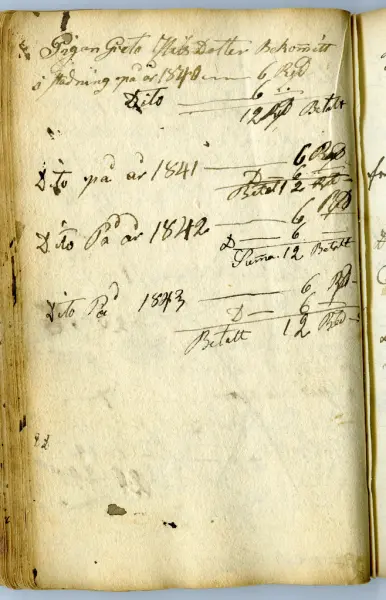 Pigan Greta Dotter Bekomitt
i städning på år 1840 — 6 Rd
Dito — 6 —
12 Rd Betalt
Dito på år 1841 — 6 Rd
D — 6 —
Betalt 12 Rd
Dito På år 1842 — 6 Rd
D — 6 —
Suma 12 Betalt
Dito På 1843 — 6 Rd
D — 6 —
Betalt 12 Rd